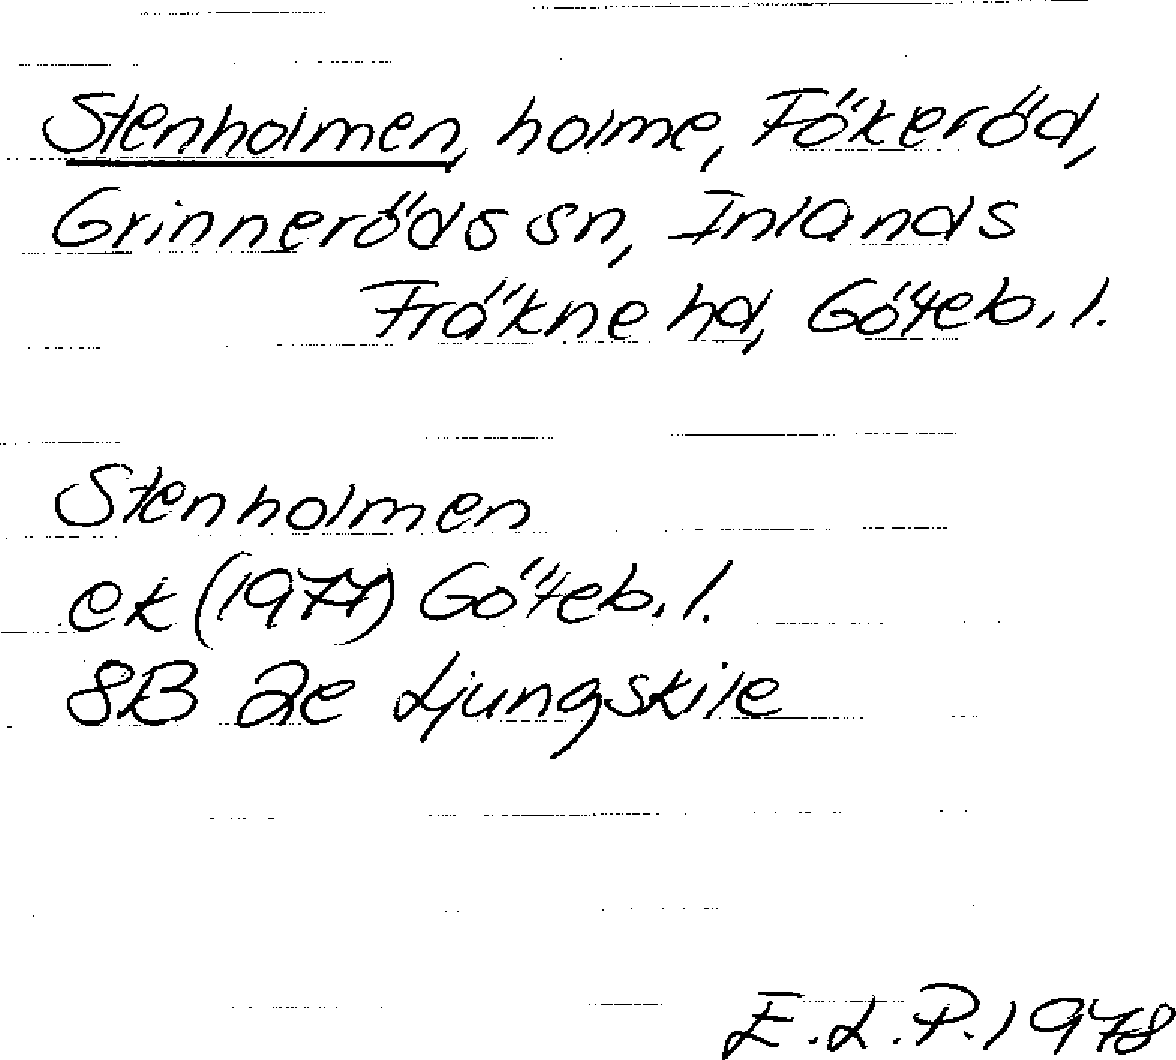 Stenholmen, holme, Fökeröd,
Grinneröds sn, Inlands
Fräkne hd, Göteb. l.
Stenholmen
ek (1977) Göteb. l.
8B 2e Ljungskile
E.L.P. 1978